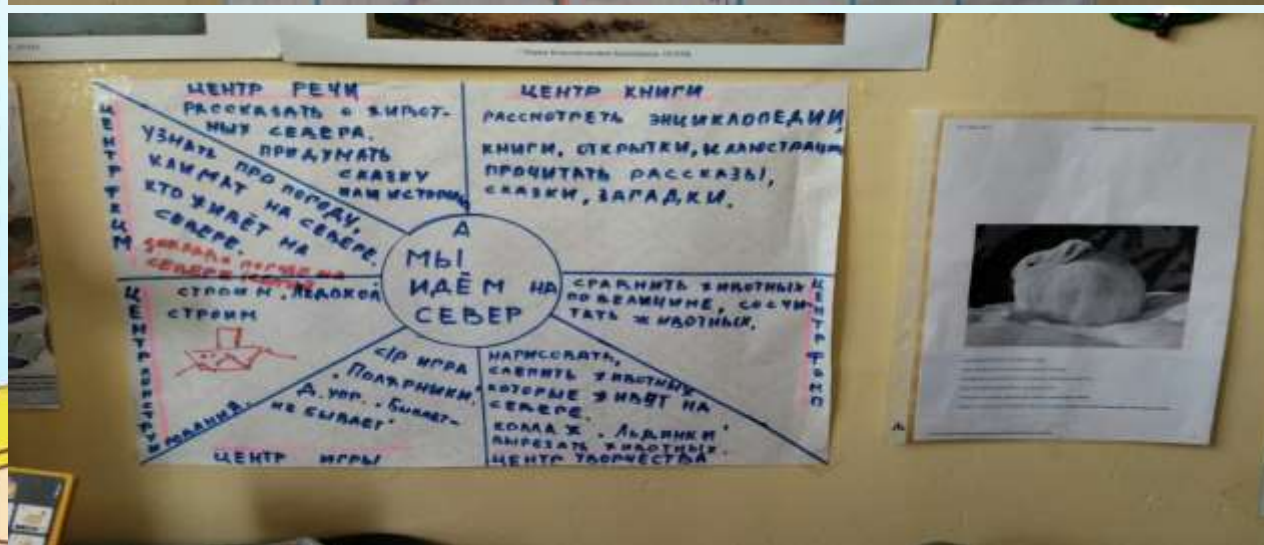 ЦЕНТР РЕЧИ
РАССКАЗАТЬ О ЖИВОТ-
НЫХ СЕВЕРА.
ПРИДУМАТЬ
СКАЗКУ
ИЛИ ИСТОРИЮ
ЦЕНТР КНИГИ
РАССМОТРЕТЬ ЭНЦИКЛОПЕДИИ,
КНИГИ, ОТКРЫТКИ, ИЛЛЮСТРАЦИИ
ПРОЧИТАТЬ РАССКАЗЫ,
СКАЗКИ, ЗАГАДКИ.
ЦЕНТР
УЗНАТЬ ПРО ПОГОДУ,
КЛИМАТ НА СЕВЕРЕ.
КТО ЖИВЁТ НА
СЕВЕРЕ.
А
МЫ
ИДЁМ НА
СЕВЕР
СРАВНИТЬ ЖИВОТНЫХ
ПО ВЕЛИЧИНЕ, СОСЧИ-
ТАТЬ ЖИВОТНЫХ.
ЦЕНТР ФЭМП
ЦЕНТР КОНСТРУИ
РОВАНИЯ.
СТРОИМ
СТРОИМ
С/Р ИГРА
"ПОЛЯРНИКИ"
Д. УПР. "БЫВАЕТ-
НЕ БЫВАЕТ"
ЦЕНТР ИГРЫ
НАРИСОВАТЬ,
СЛЕПИТЬ ЖИВОТНЫХ
КОТОРЫЕ ЖИВУТ НА
СЕВЕРЕ.
КОЛЛАЖ "ЛЬДИНКИ"
ВЫРЕЗАТЬ ЖИВОТНЫХ.
ЦЕНТР ТВОРЧЕСТВА